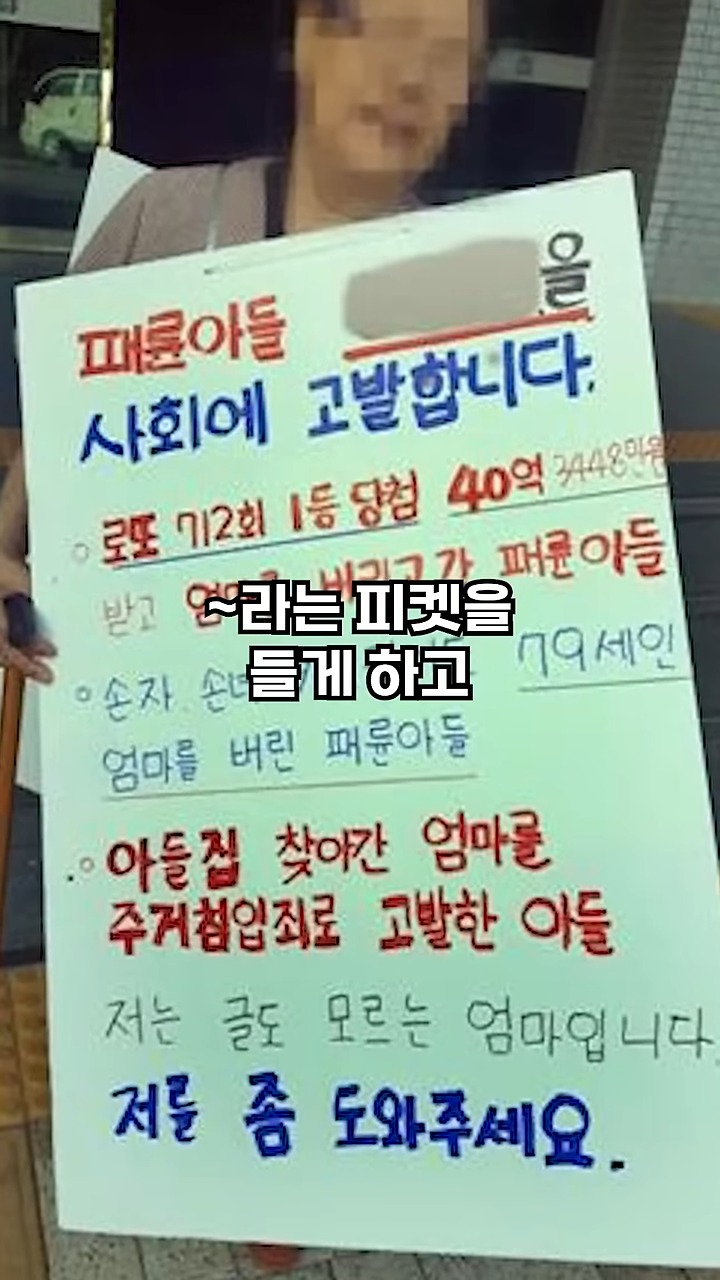 패륜아들 을
사회에 고발합니다.
○ 로또 712회 1등 당첨 40억 3448만원
받고 엄마를 버리고간 패륜아들
~라는 피켓을
들게 하고
○ 손자 손녀 79세인
엄마를 버린 패륜아들
○ 아들집 찾아간 엄마를
주거침입죄로 고발한 아들
저는 글도 모르는 엄마입니다.
저를 좀 도와주세요.